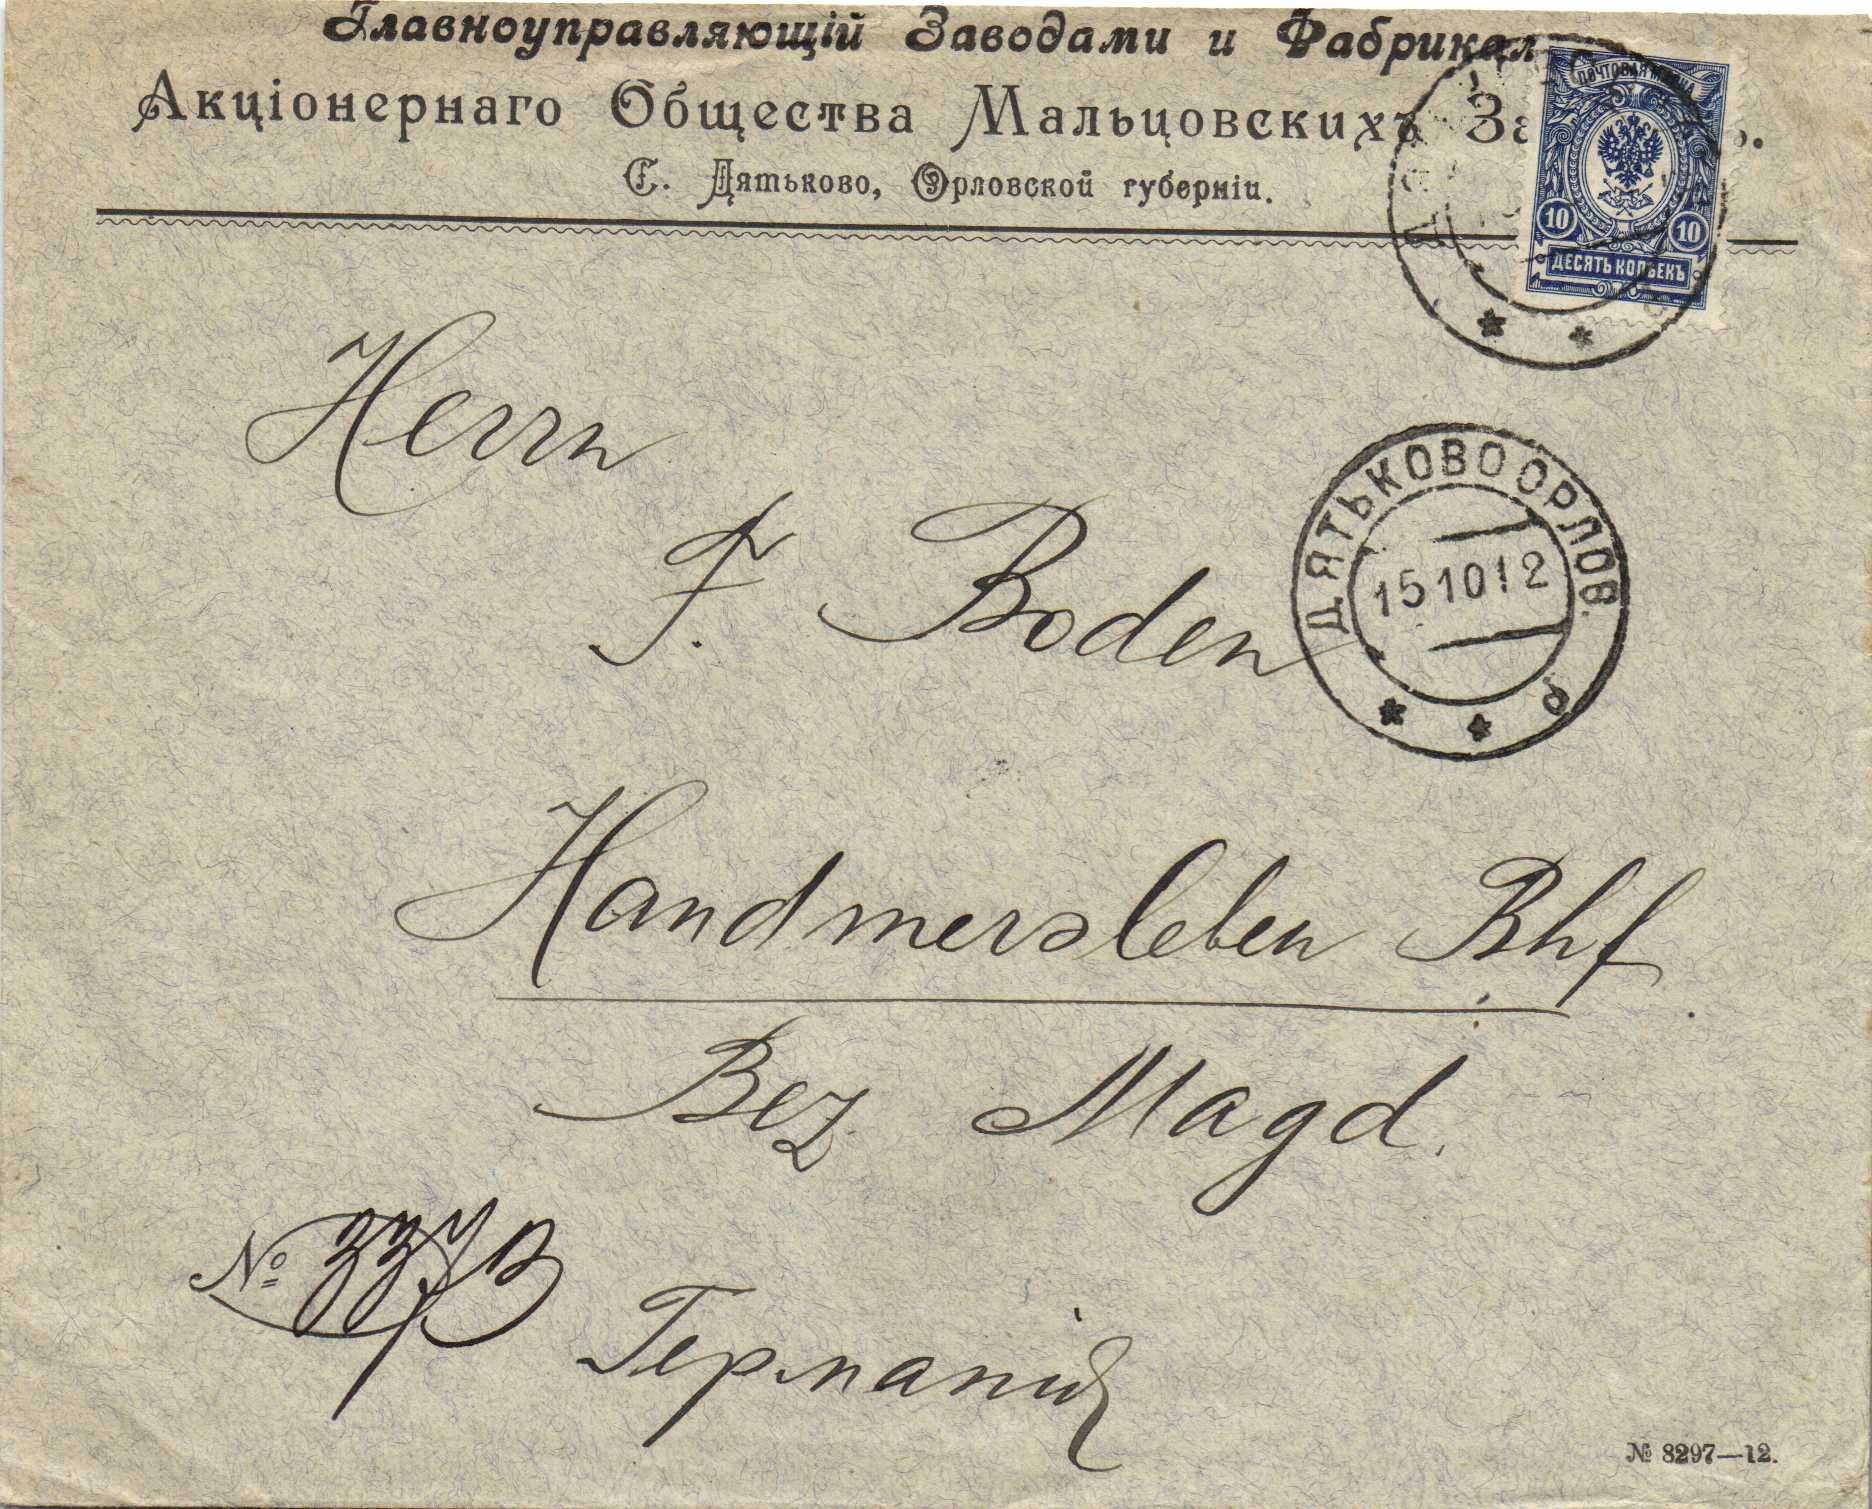 Главноуправляющій Заводами и
Акціонернаго Общества Мальцовскихъ
С. Дятьково, Орловской губерніи.
ПОЧТОВАЯ МАРКА
10 10
ДЕСЯТЬ КОПѢЕКЪ
ДЯТЬКОВО ОРЛОВ.
15 10 12
Herrn
F. Boden
Handmersleben Bhf.
Bez. Magd.
№
Германія
№ 8297—12.